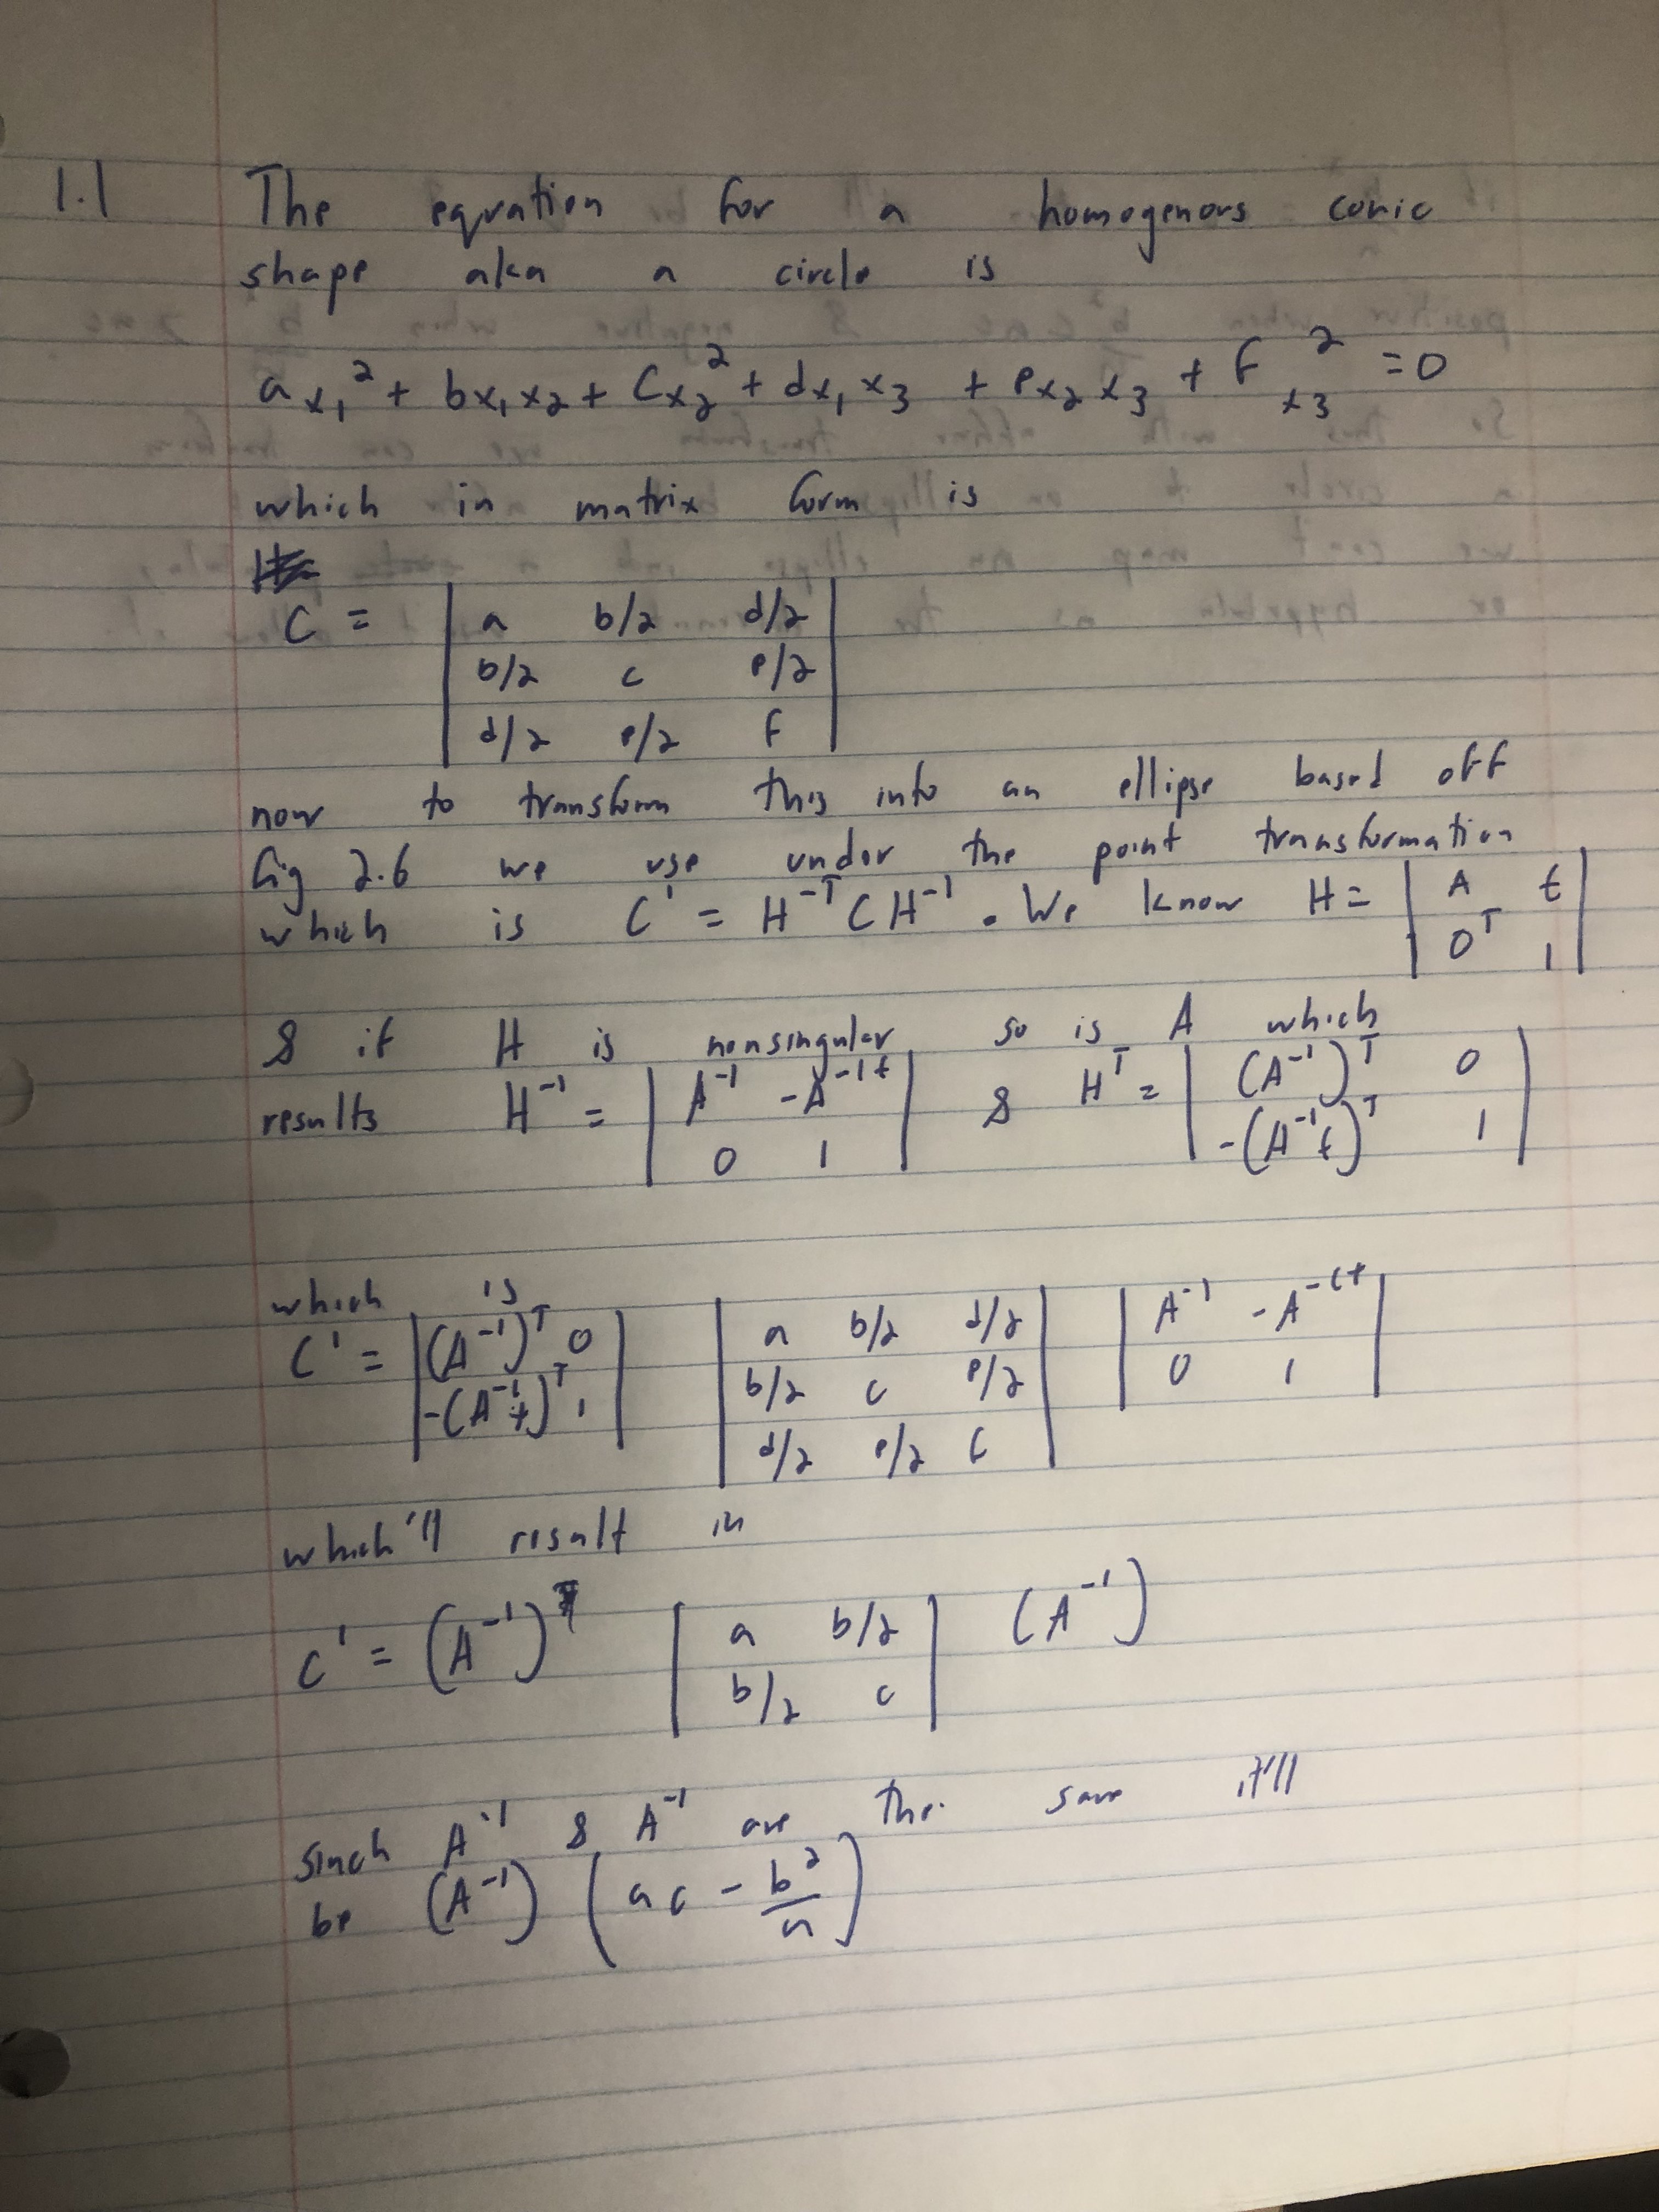 1.1 The equation for a homogenors conic
shape aka a circle is
ax₁² + bx₁x₂ + Cx₂² + dx₁x₃ + ex₂x₃ + f x₃² = 0
which in matrix form is
C = | a b/2 d/2 |
| b/2 c e/2 |
| d/2 e/2 f |
now to transform this into an ellipse based off
fig 2.6 we use under the point transformation
which is C' = H⁻ᵀ C H⁻¹. We know H = | A t |
| 0ᵀ 1 |
& if H is nonsingular so is A which
results H⁻¹ = | A⁻¹ -A⁻¹t | & Hᵀ = | (A⁻¹)ᵀ 0 |
| 0 1 | | -(A⁻¹t)ᵀ 1 |
which is
C' = | (A⁻¹)ᵀ 0 | | a b/2 d/2 | | A⁻¹ -A⁻¹t |
| -(A⁻¹t)ᵀ 1 | | b/2 c e/2 | | 0 1 |
| d/2 e/2 f |
which'll result in
C' = (A⁻¹)ᵀ | a b/2 | (A⁻¹)
| b/2 c |
sinch A⁻¹ & A⁻¹ are the same it'll
be (A⁻¹) (ac - b²/n)